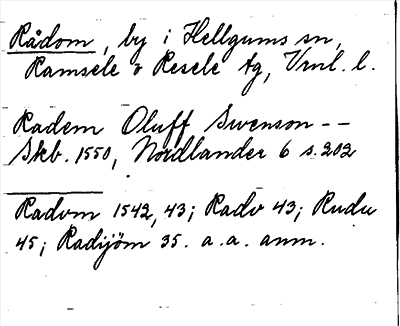 Rådom, by i Hellgums sn,
Ramsele o Resele tg, Vrnl. l.
Radem Oluff Swenson --
Skb. 1550, Nordlander 6 s. 202
Radom 1542, 43; Rado 43; Rudu
45; Radijöm 35. a. a. anm.